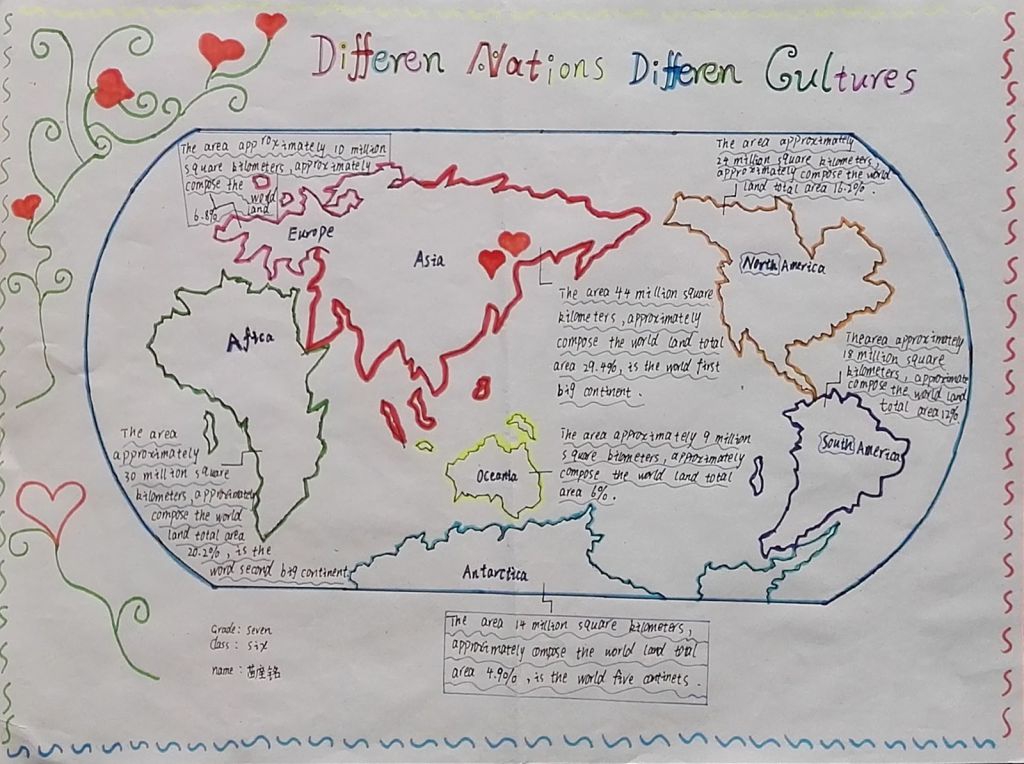 Differen Nations Differen Cultures
The area approximately 10 million
square kilometers, approximately
compose the world
6.8% land
Europe
Asia
The area approximately
24 million square kilometers,
approximately compose the world
land total area 16.2%.
North America
Africa
The area 44 million square
kilometers, approximately
compose the world land total
area 29.4%, is the world first
big continent.
The area approximately
18 million square
kilometers, approximate
compose the world land
total area 12%
South America
The area
approximately
30 million square
kilometers, approximately
compose the world
land total area
20.2%, is the
word second big continent
Oceania
The area approximately 9 million
square kilometers, approximately
compose the world land total
area 6%.
Antarctica
The area 14 million square kilometers,
approximately compose the world land total
area 4.9%, is the world five continets.
Grade: seven
Class: six
name: